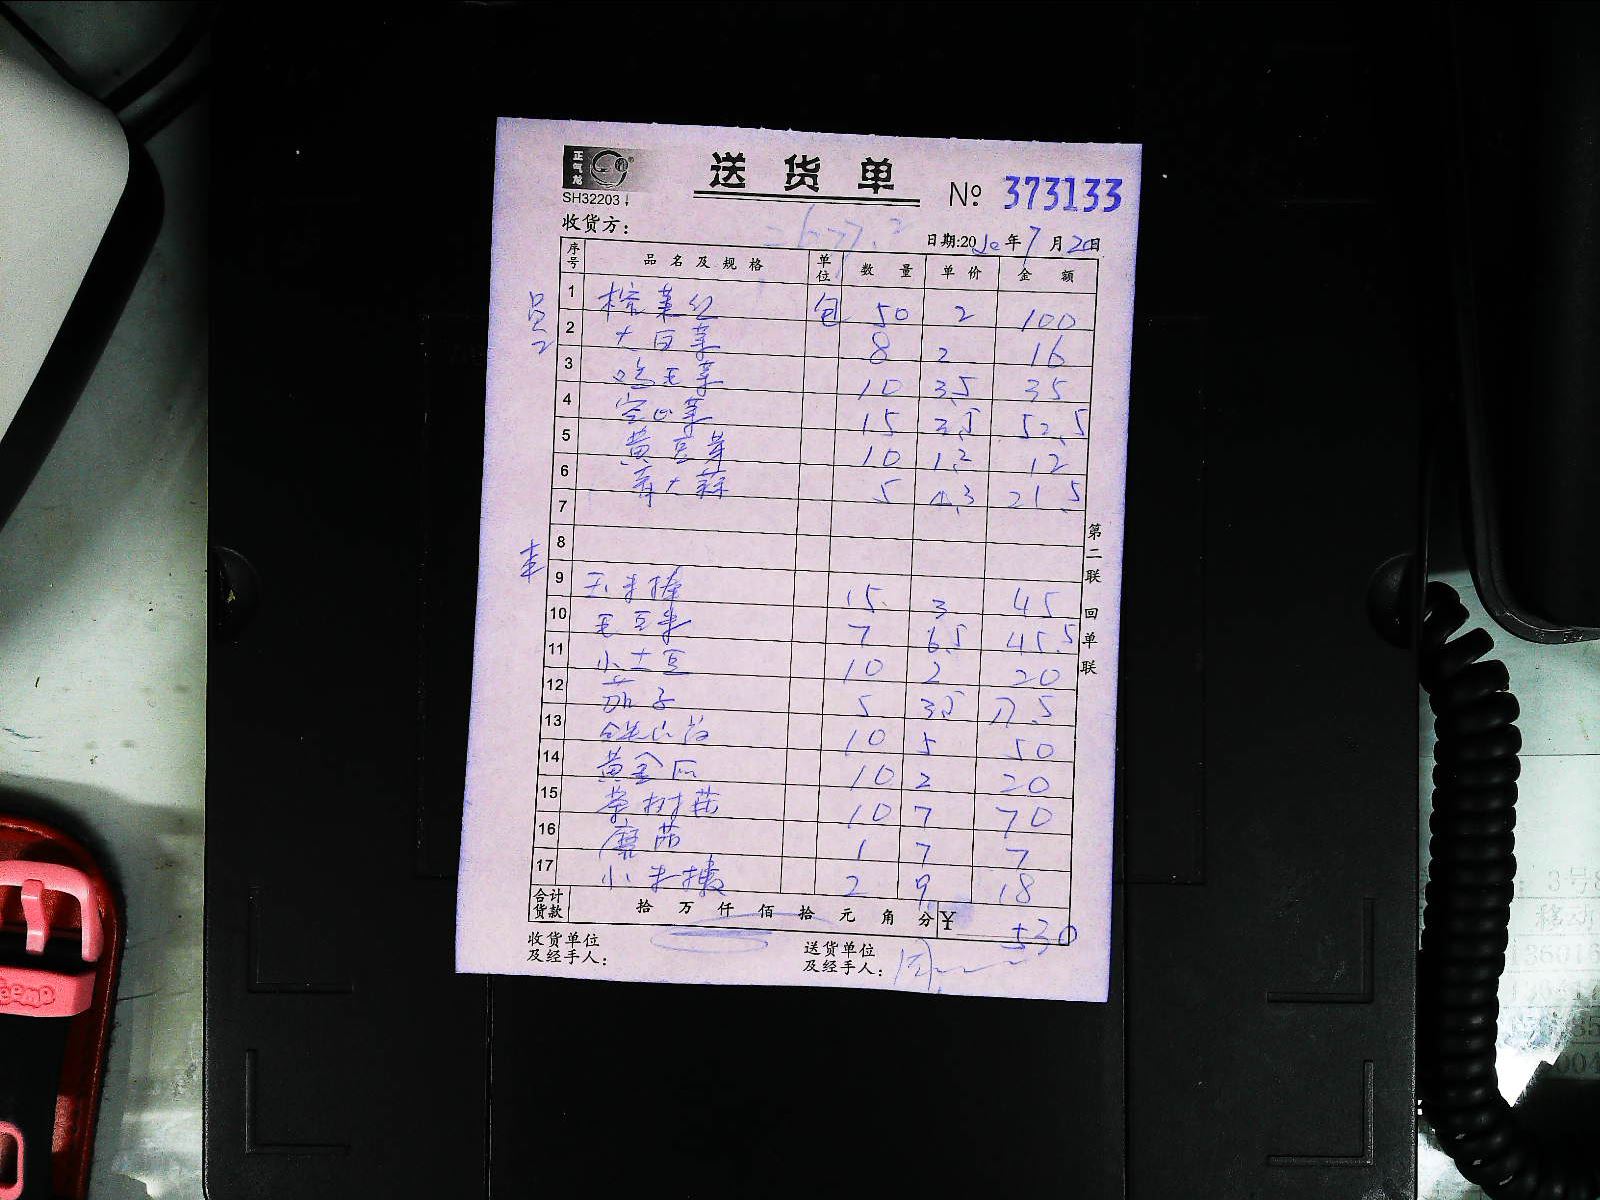 正气龙
SH32203
送货单
№ 373133
收货方：
日期:2020年7月20日
序号 品名及规格 单位 数量 单价 金额
员工
1 榨菜丝 包 50 2 100
2 大白菜 8 2 16
3 鸡毛菜 10 3.5 35
4 空心菜 15 3.5 52.5
5 黄豆芽 10 1.2 12
6 青大蒜 5 4.3 21.5
7
8
9 玉米棒 15 3 45
10 毛豆米 7 6.5 45.5
11 小土豆 10 2 20
12 茄子 5 3.5 17.5
13 铁山药 10 5 50
14 黄金瓜 10 2 20
15 茶树菇 10 7 70
16 蘑菇 1 7 7
17 小米椒 2 9 18
合计货款 拾万仟佰拾元角分 ¥ 530
收货单位及经手人：
送货单位及经手人：
第二联 回单联